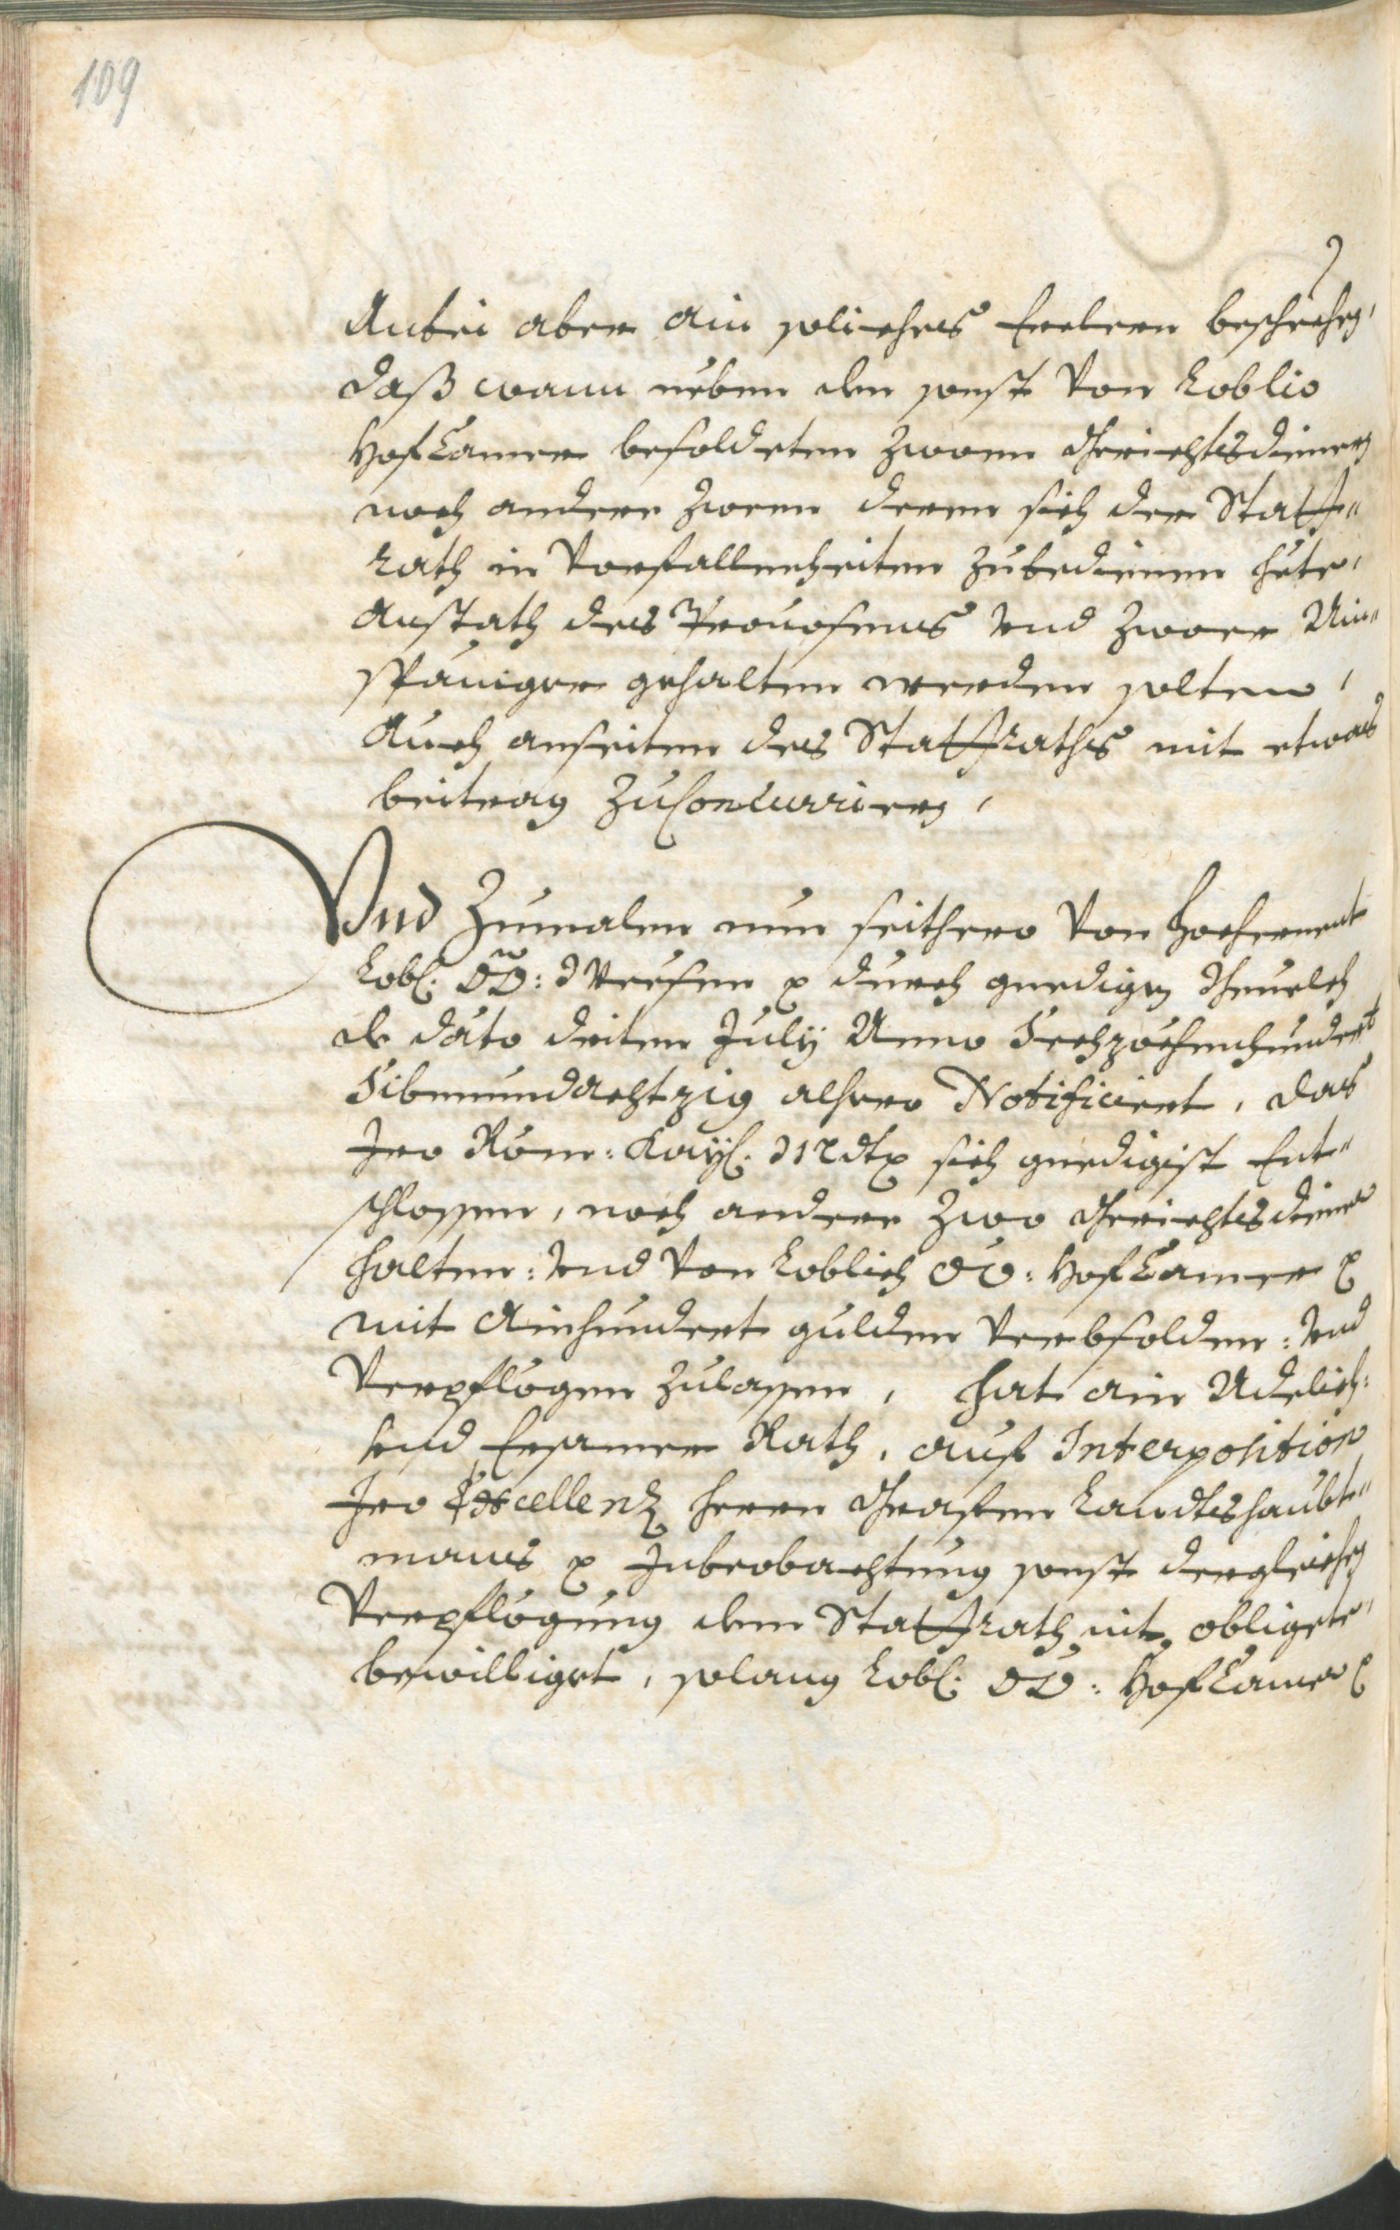 109
Anbei aber ain soliches Erclern beschechen,
daß wann neben den sonst von Loblich
Hof Camer besoldeten zwoen Gerichtsdienern
noch andere zween deren sich der Statt¬
rath in Vorfallenheiten zubedienen hete,
anstath des Provosens vnd zwoer Ain¬
späniger gehalten werden solten,
auch anseiten des Stattraths mit etwas
beitrag zu Concurrieren,
Vnd Zumalen nun seithero von hochernent
Lobl. OÖ: Weesen p durch gnedigen
de dato driten July Anno Sechzechenhundert
Sibenundachtzig alhero Notificiert, das
Iro Röm: Kayl: Mtt p sich gnedigist Ent¬
schlossen, noch andere zwo Gerichtsdiener
halten: vnd von Loblich OÖ: Hof Camer p
mit Ainhundert gulden besolden: vnd
Verpflegen zulassen, hat ain Adelich:
vnd Ersamer Rath, auf Interposition
Iro Excellenz herrn Grafen Landtshaubt¬
mans p Inbeobachtung sonst dergleichen
Verpflegung dem Stattrath nit obligete,
bewilliget, solang Lobl: OÖ: Hof Camer p